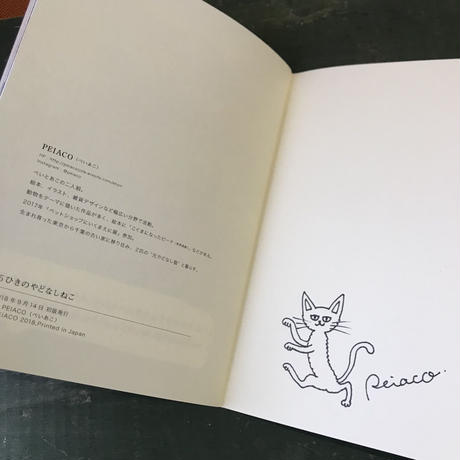 PEIACO（ぺいあこ）
Instagram : @peiaco
ぺいとあこの二人組。
絵本、イラスト、雑貨デザインなど幅広い分野で活動。
動物をテーマに描いた作品が多く、絵本に「こぐまになったピート」などがある。
2012年「ペットショップにいくまえに展」参加。
生まれ育った東京から千葉の古い家に移り住み、2匹の“元やどなし猫”と暮らす。
ひきのやどなしねこ
18年9月14日 初版発行
PEIACO（ぺいあこ）
PEIACO 2018,Printed in Japan
peiaco.